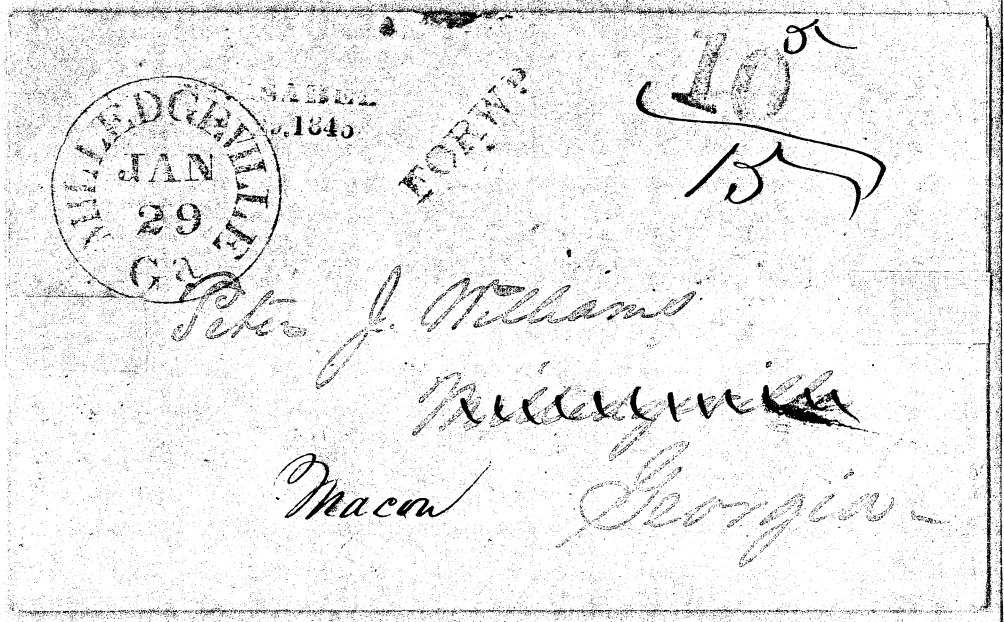 MILLEDGEVILLE
JAN
29
Ga
SABEL
5, 1845
FORWD
10
15
Peter J. Williams
Milledgeville
Macon
Georgia